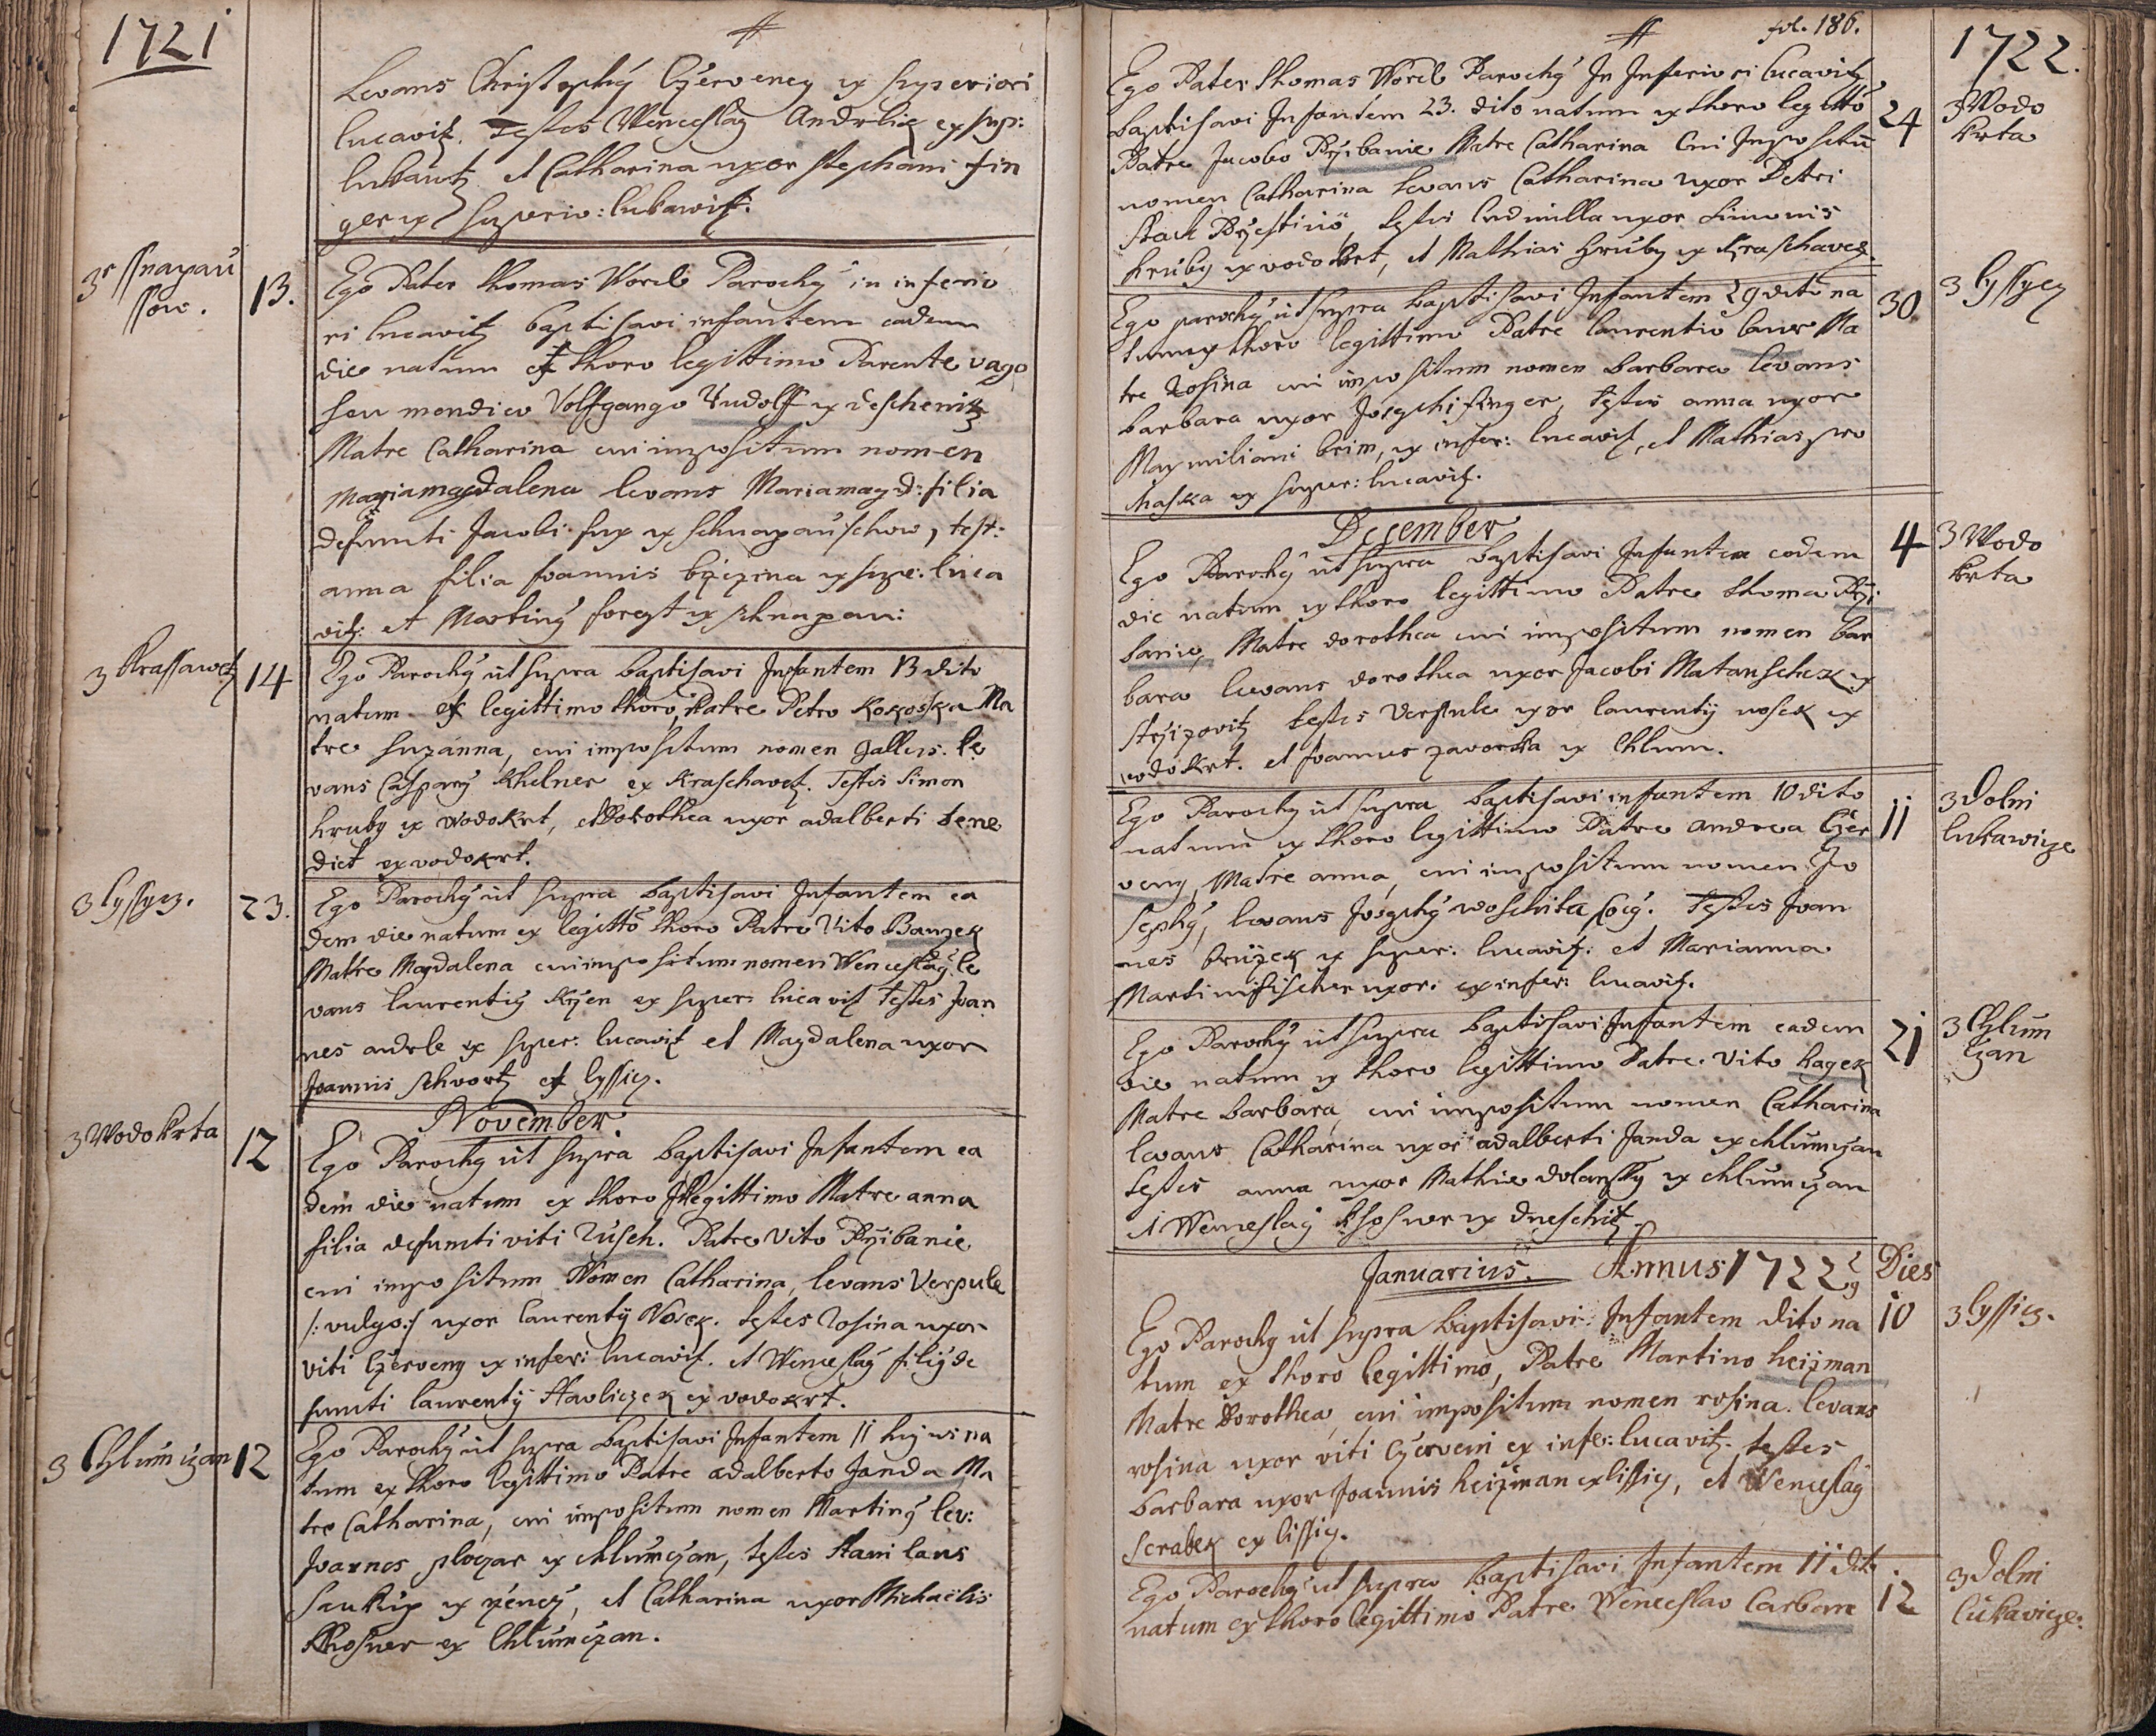 1721
Levans Christophÿ Czerveney ex superiori
lucavitz. Testes Wenceslaÿ Andrlik ex sup:
lukautz et Catharina uxor stephani fin
ger ex superio: lukawitz.
z ssnapau
ssow.
13.
Ego Pater Thomas Worel Parochÿ in inferio
ri lucavitz baptisavi infantem eadem
die natum ex thoro legittimo Parente vago
seu mendico Volfgango Rudolff ex deschenitz
Matre Catharina cui impositum nomen
Mariamagdalena levans Mariamagd: filia
defuncti Jacobi sup ex schnapauschow, test:
anna filia Joannis ex supe: luca
vitz: et Martinÿ forest ex schnapau:
z Krassawetz 14
Ego Parochÿ ut supra baptisavi Infantem 13 dito
natum ex legittimo thoro, Patre Petro Kokoska Ma
tre suzanna, cui impositum nomen gallus. le
vans Casparÿ Khelner ex Kraschavetz. Testes Simon
hruby ex Wodokrt, et Dorothea uxor adalberti bene
dict ex vodokrt.
z lyssycz. 23.
Ego Parochÿ ut supra baptisavi Infantem ea
dem die natum ex legitto thoro Patre Vito Banzek
Matre Magdalena cui impositum nomen Wenceslaÿ. le
vans laurentiÿ Krzen ex super: lucavitz testes Joan
nes andrle ex super: lucavitz et Magdalena uxor
Joannis schvortz ex lyssicz.
November.
z Wodokrta 12
Ego Parochÿ ut supra baptisavi Infantem ea
dem die natum ex thoro Illegittimo Matre anna
filia defuncti viti Rusch. Patre Vito Przibanie
cui impositum Nomen Catharina, levans Verpule
/: vulgo :/ uxor laurentÿ Nosek. testes rosina uxor
viti Czerveny ex infer: lucavitz. et Wenceslaÿ filiÿ de
functi laurentÿ Havliczek ex vodokrt.
z Chlumczan 12
Ego Parochÿ ut supra baptisavi Infantem 11 hujus na
tum ex thoro legittimo Patre adalberto Janda Ma
tre Catharina, cui impositum nomen Martinÿ lev:
Joannes ploczar ex chlumczan, testes stanilaus
saukup ex , et Catharina uxor Michaëlis
Khosner ex Chlumczan.
fol. 186.
1722.
Ego Pater Thomas Worel Parochÿ In Inferiori lucavitz
baptisavi Infantem 23. dito natum ex thoro legitto
Patre Jacobo Przibanie Matre Catharina Cui Impositu
nomen Catharina levans Catharina uxor Petri
stach , testes ludmilla uxor Simonis
hruby ex vodokrt, et Mathias hruby ex Kraschavez.
24
z Wodo
krta
Ego parochÿ ut supra baptisavi Infantem 29 dito na
tum ex thoro legittimo Patre laurentio laur Ma
tre Rosina cui impositum nomen barbara levans
barbara uxor Josephi finger, testes anna uxor
Maxmiliani brim, ex infer: lucavitz, et Mathias pro
chaska ex super: lucavitz.
30
z lyssycz
December
Ego Parochÿ ut supra baptisavi Infantem eodem
die natum ex thoro legittimo Patre thoma Przi
banie, Matre dorothea cui impositum nomen bar
bara levans dorothea uxor Jacobi Matauschek ex
strzipovitz testes Verpule uxor laurentÿ nosek ex
vodokrt. et Joannes zavorka ex Chlum.
4
z Wodo
krta
Ego Parochÿ ut supra baptisavi infantem 10 dito
natum ex thoro legittimo Patre andrea Czer
veny, Matre anna, cui impositum nomen Jo
sephÿ, levans Josephÿ woschita . testes Joan
nes bruzek ex super: lucavitz: et Marianna
Martini fischer uxor: ex infer: lucavitz.
11
z Dolni
lukawicze
Ego Parochÿ ut supra baptisavi Infantem eadem
die natum ex thoro legittimo Patre Vito hagek
Matre barbara, cui impositum nomen Catharina
levans Catharina uxor adalberti Janda ex chlumczan
testes anna uxor Mathiæ dolansky ex chlumczan
et Wenceslaÿ Khosner ex dneschitz.
21
z Chlum
czan
Januarius. Annus 1722 Dies
Ego Parochÿ ut supra baptisavi Infantem dito na
tum ex thoro legittimo, Patre Martino heizman
Matre Dorothea, cui impositum nomen rosina. levans
rosina uxor viti Czerveni ex infe: lucavitz. testes
barbara uxor Joannis heizman ex lissicz, et Wenceslaÿ
scrabek ex lissicz.
10
z lyssicz.
Ego Parochÿ ut supra baptisavi Infantem 11 dito
natum ex thoro legittimo Patre Wenceslao Carban
12
z Dolni
lukavicze: